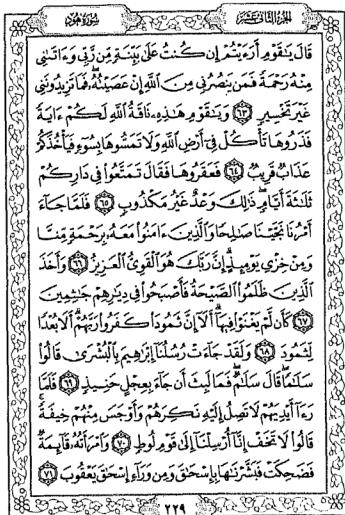 الجزء الثاني عشر
سورة هود
قَالَ يَٰقَوْمِ أَرَءَيْتُمْ إِن كُنتُ عَلَىٰ بَيِّنَةٍ مِّن رَّبِّى وَءَاتَىٰنِى
مِنْهُ رَحْمَةً فَمَن يَنصُرُنِى مِنَ ٱللَّهِ إِنْ عَصَيْتُهُۥ فَمَا تَزِيدُونَنِى
غَيْرَ تَخْسِيرٍ ٦٣ وَيَٰقَوْمِ هَٰذِهِۦ نَاقَةُ ٱللَّهِ لَكُمْ ءَايَةً
فَذَرُوهَا تَأْكُلْ فِىٓ أَرْضِ ٱللَّهِ وَلَا تَمَسُّوهَا بِسُوٓءٍ فَيَأْخُذَكُمْ
عَذَابٌ قَرِيبٌ ٦٤ فَعَقَرُوهَا فَقَالَ تَمَتَّعُوا۟ فِى دَارِكُمْ
ثَلَٰثَةَ أَيَّامٍ ذَٰلِكَ وَعْدٌ غَيْرُ مَكْذُوبٍ ٦٥ فَلَمَّا جَآءَ
أَمْرُنَا نَجَّيْنَا صَٰلِحًا وَٱلَّذِينَ ءَامَنُوا۟ مَعَهُۥ بِرَحْمَةٍ مِّنَّا
وَمِنْ خِزْىِ يَوْمِئِذٍ إِنَّ رَبَّكَ هُوَ ٱلْقَوِىُّ ٱلْعَزِيزُ ٦٦ وَأَخَذَ
ٱلَّذِينَ ظَلَمُوا۟ ٱلصَّيْحَةُ فَأَصْبَحُوا۟ فِى دِيَٰرِهِمْ جَٰثِمِينَ
٦٧ كَأَن لَّمْ يَغْنَوْا۟ فِيهَآ أَلَآ إِنَّ ثَمُودَا۟ كَفَرُوا۟ رَبَّهُمْ أَلَا بُعْدًا
لِّثَمُودَ ٦٨ وَلَقَدْ جَآءَتْ رُسُلُنَآ إِبْرَٰهِيمَ بِٱلْبُشْرَىٰ قَالُوا۟
سَلَٰمًا قَالَ سَلَٰمٌ فَمَا لَبِثَ أَن جَآءَ بِعِجْلٍ حَنِيذٍ ٦٩ فَلَمَّا
رَءَآ أَيْدِيَهُمْ لَا تَصِلُ إِلَيْهِ نَكِرَهُمْ وَأَوْجَسَ مِنْهُمْ خِيفَةً
قَالُوا۟ لَا تَخَفْ إِنَّآ أُرْسِلْنَآ إِلَىٰ قَوْمِ لُوطٍ ٧٠ وَٱمْرَأَتُهُۥ قَآئِمَةٌ
فَضَحِكَتْ فَبَشَّرْنَٰهَا بِإِسْحَٰقَ وَمِن وَرَآءِ إِسْحَٰقَ يَعْقُوبَ ٧١
٢٢٩